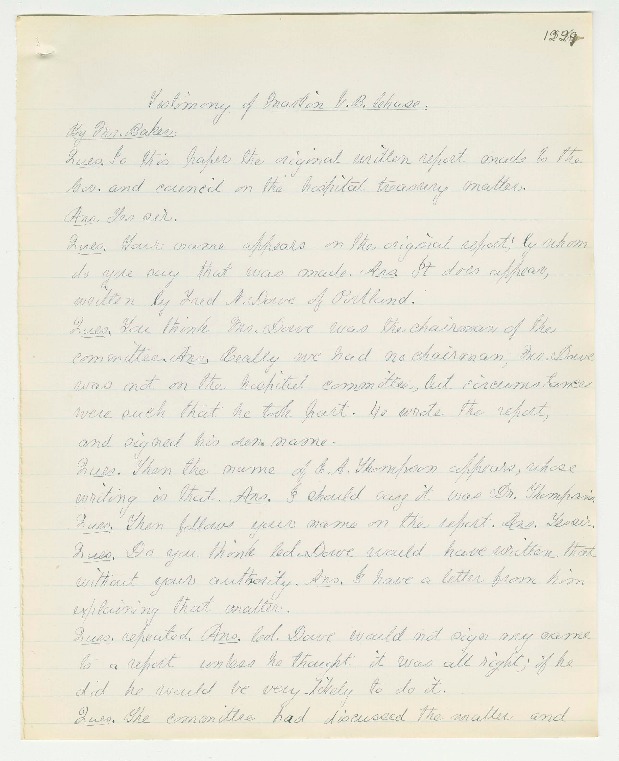 1229
Testimony of Martin V. B. Chase.
By Mr. Baker.
Ques. Is this paper the original written report made to the
Gov. and council on the hospital treasury matter.
Ans. Yes sir.
Ques. Your name appears on the original report; by whom
do you say that was made. Ans. It does appear,
written by Fred N. Dowe of Portland.
Ques. You think Mr. Dowe was the chairman of the
committee. Ans. Really we had no chairman, Mr. Dowe
was not on the hospital committee, but circumstances
were such that he took part. He wrote the report,
and signed his own name.
Ques. Then the name of E. A. Thompson appears, whose
writing is that. Ans. I should say it was Dr. Thompson's
Ques. Then follows your name on the report. Ans. Yes sir.
Ques. Do you think Col. Dowe would have written that
without your authority. Ans. I have a letter from him
explaining that matter.
Ques. repeated. Ans. Col. Dowe would not sign my name
to a report unless he thought it was all right; if he
did he would be very likely to do it.
Ques. The committee had discussed the matter and